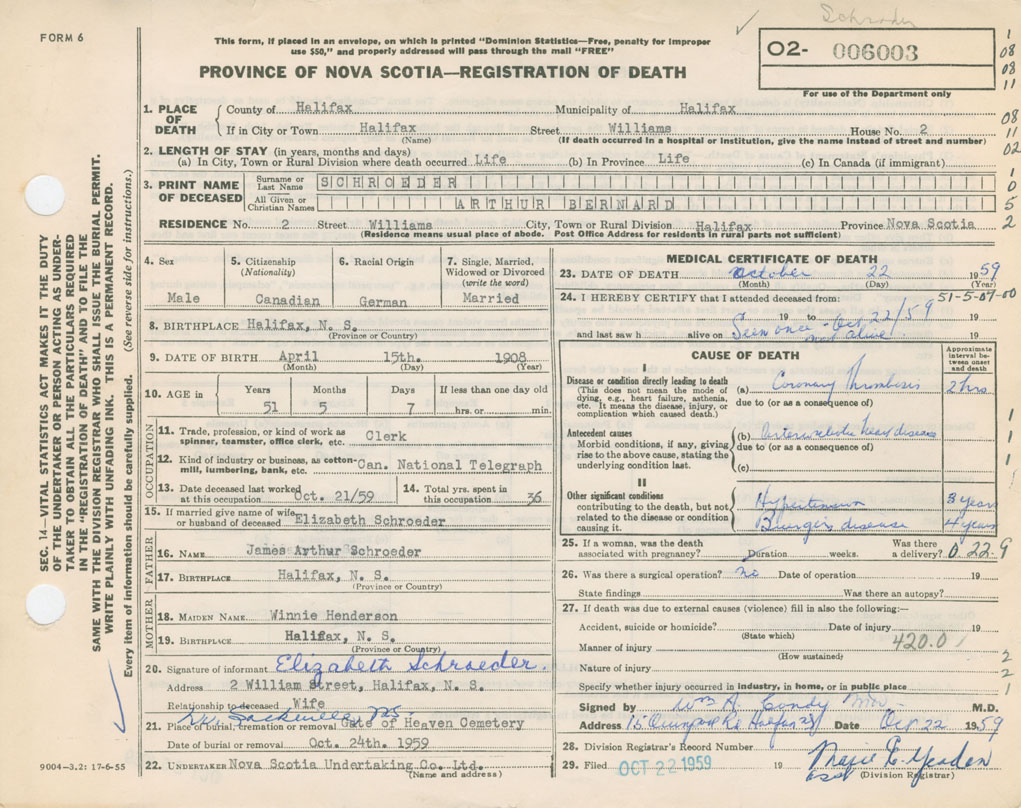 Schroder
FORM 6
This form, if placed in an envelope, on which is printed "Dominion Statistics—Free, penalty for improper
use $50," and properly addressed will pass through the mail "FREE"
PROVINCE OF NOVA SCOTIA—REGISTRATION OF DEATH
02- 006003
For use of the Department only
1
08
08
11
08
11
02
1
0
5
2
1. PLACE OF DEATH
County of Halifax Municipality of Halifax
If in City or Town Halifax Street Williams House No. 2
(Name) (If death occurred in a hospital or institution, give the name instead of street and number)
2. LENGTH OF STAY (in years, months and days)
(a) In City, Town or Rural Division where death occurred Life (b) In Province Life (c) In Canada (if immigrant)
3. PRINT NAME OF DECEASED
Surname or Last Name SCHROEDER
All Given or Christian Names ARTHUR BERNARD
RESIDENCE No. 2 Street Williams City, Town or Rural Division Halifax Province Nova Scotia
(Residence means usual place of abode. Post Office Address for residents in rural parts not sufficient)
4. Sex
Male
5. Citizenship
(Nationality)
Canadian
6. Racial Origin
German
7. Single, Married,
Widowed or Divorced
(write the word)
Married
8. BIRTHPLACE Halifax, N. S.
(Province or Country)
9. DATE OF BIRTH April 15th. 1908
(Month) (Day) (Year)
10. AGE in
Years Months Days If less than one day old
51 5 7 hrs. or min.
OCCUPATION
11. Trade, profession, or kind of work as
spinner, teamster, office clerk, etc. Clerk
12. Kind of industry or business, as cotton-
mill, lumbering, bank, etc. Can. National Telegraph
13. Date deceased last worked
at this occupation Oct. 21/59
14. Total yrs. spent in
this occupation 36
15. If married give name of wife
or husband of deceased Elizabeth Schroeder
FATHER
16. NAME James Arthur Schroeder
17. BIRTHPLACE Halifax, N. S.
(Province or Country)
MOTHER
18. MAIDEN NAME Winnie Henderson
19. BIRTHPLACE Halifax, N. S.
(Province or Country)
20. Signature of informant Elizabeth Schroeder.
Address 2 William Street, Halifax, N. S.
Relationship to deceased Wife
Sackville NS
21. Place of burial, cremation or removal Gate of Heaven Cemetery
Date of burial or removal Oct. 24th. 1959
22. UNDERTAKER Nova Scotia Undertaking Co. Ltd.
(Name and address)
MEDICAL CERTIFICATE OF DEATH
23. DATE OF DEATH October 22 1959
(Month) (Day) (Year)
51-5-07-00
24. I HEREBY CERTIFY that I attended deceased from:
19 to 19
Seen once - Oct 22/59
and last saw h alive on not alive 19
CAUSE OF DEATH
Approximate
interval be-
tween onset
and death
I
Disease or condition directly leading to death
(This does not mean the mode of
dying, e.g., heart failure, asthenia,
etc. It means the disease, injury, or
complication which caused death.)
(a) Coronary Thrombosis 2 hrs
due to (or as a consequence of)
Antecedent causes
Morbid conditions, if any, giving
rise to the above cause, stating the
underlying condition last.
(b) Arteriosclerotic heart disease
due to (or as a consequence of)
(c)
1
1
1
II
Other significant conditions
contributing to the death, but not
related to the disease or condition
causing it.
Hypertension 3 years
Buerger's disease 4 years
25. If a woman, was the death
associated with pregnancy? Duration weeks.
Was there
a delivery?
0 22-9
26. Was there a surgical operation? no Date of operation 19
State findings Was there an autopsy?
27. If death was due to external causes (violence) fill in also the following:—
Accident, suicide or homicide? Date of injury 19
(State which)
Manner of injury 420.0
(How sustained)
Nature of injury
Specify whether injury occurred in industry, in home, or in public place
2
2
1
Signed by Wm A. Condy M.D.
Address Date Oct 22 1959
28. Division Registrar's Record Number
29. Filed OCT 22 1959 19
(Division Registrar)
SEC. 14—VITAL STATISTICS ACT MAKES IT THE DUTY
OF THE UNDERTAKER OR PERSON ACTING AS UNDER-
TAKER TO OBTAIN ALL THE PARTICULARS REQUIRED
IN THE "REGISTRATION OF DEATH" AND TO FILE THE
SAME WITH THE DIVISION REGISTRAR WHO SHALL ISSUE THE BURIAL PERMIT.
WRITE PLAINLY WITH UNFADING INK. THIS IS A PERMANENT RECORD.
Every item of information should be carefully supplied. (See reverse side for instructions.)
9004-3.2: 17-6-55